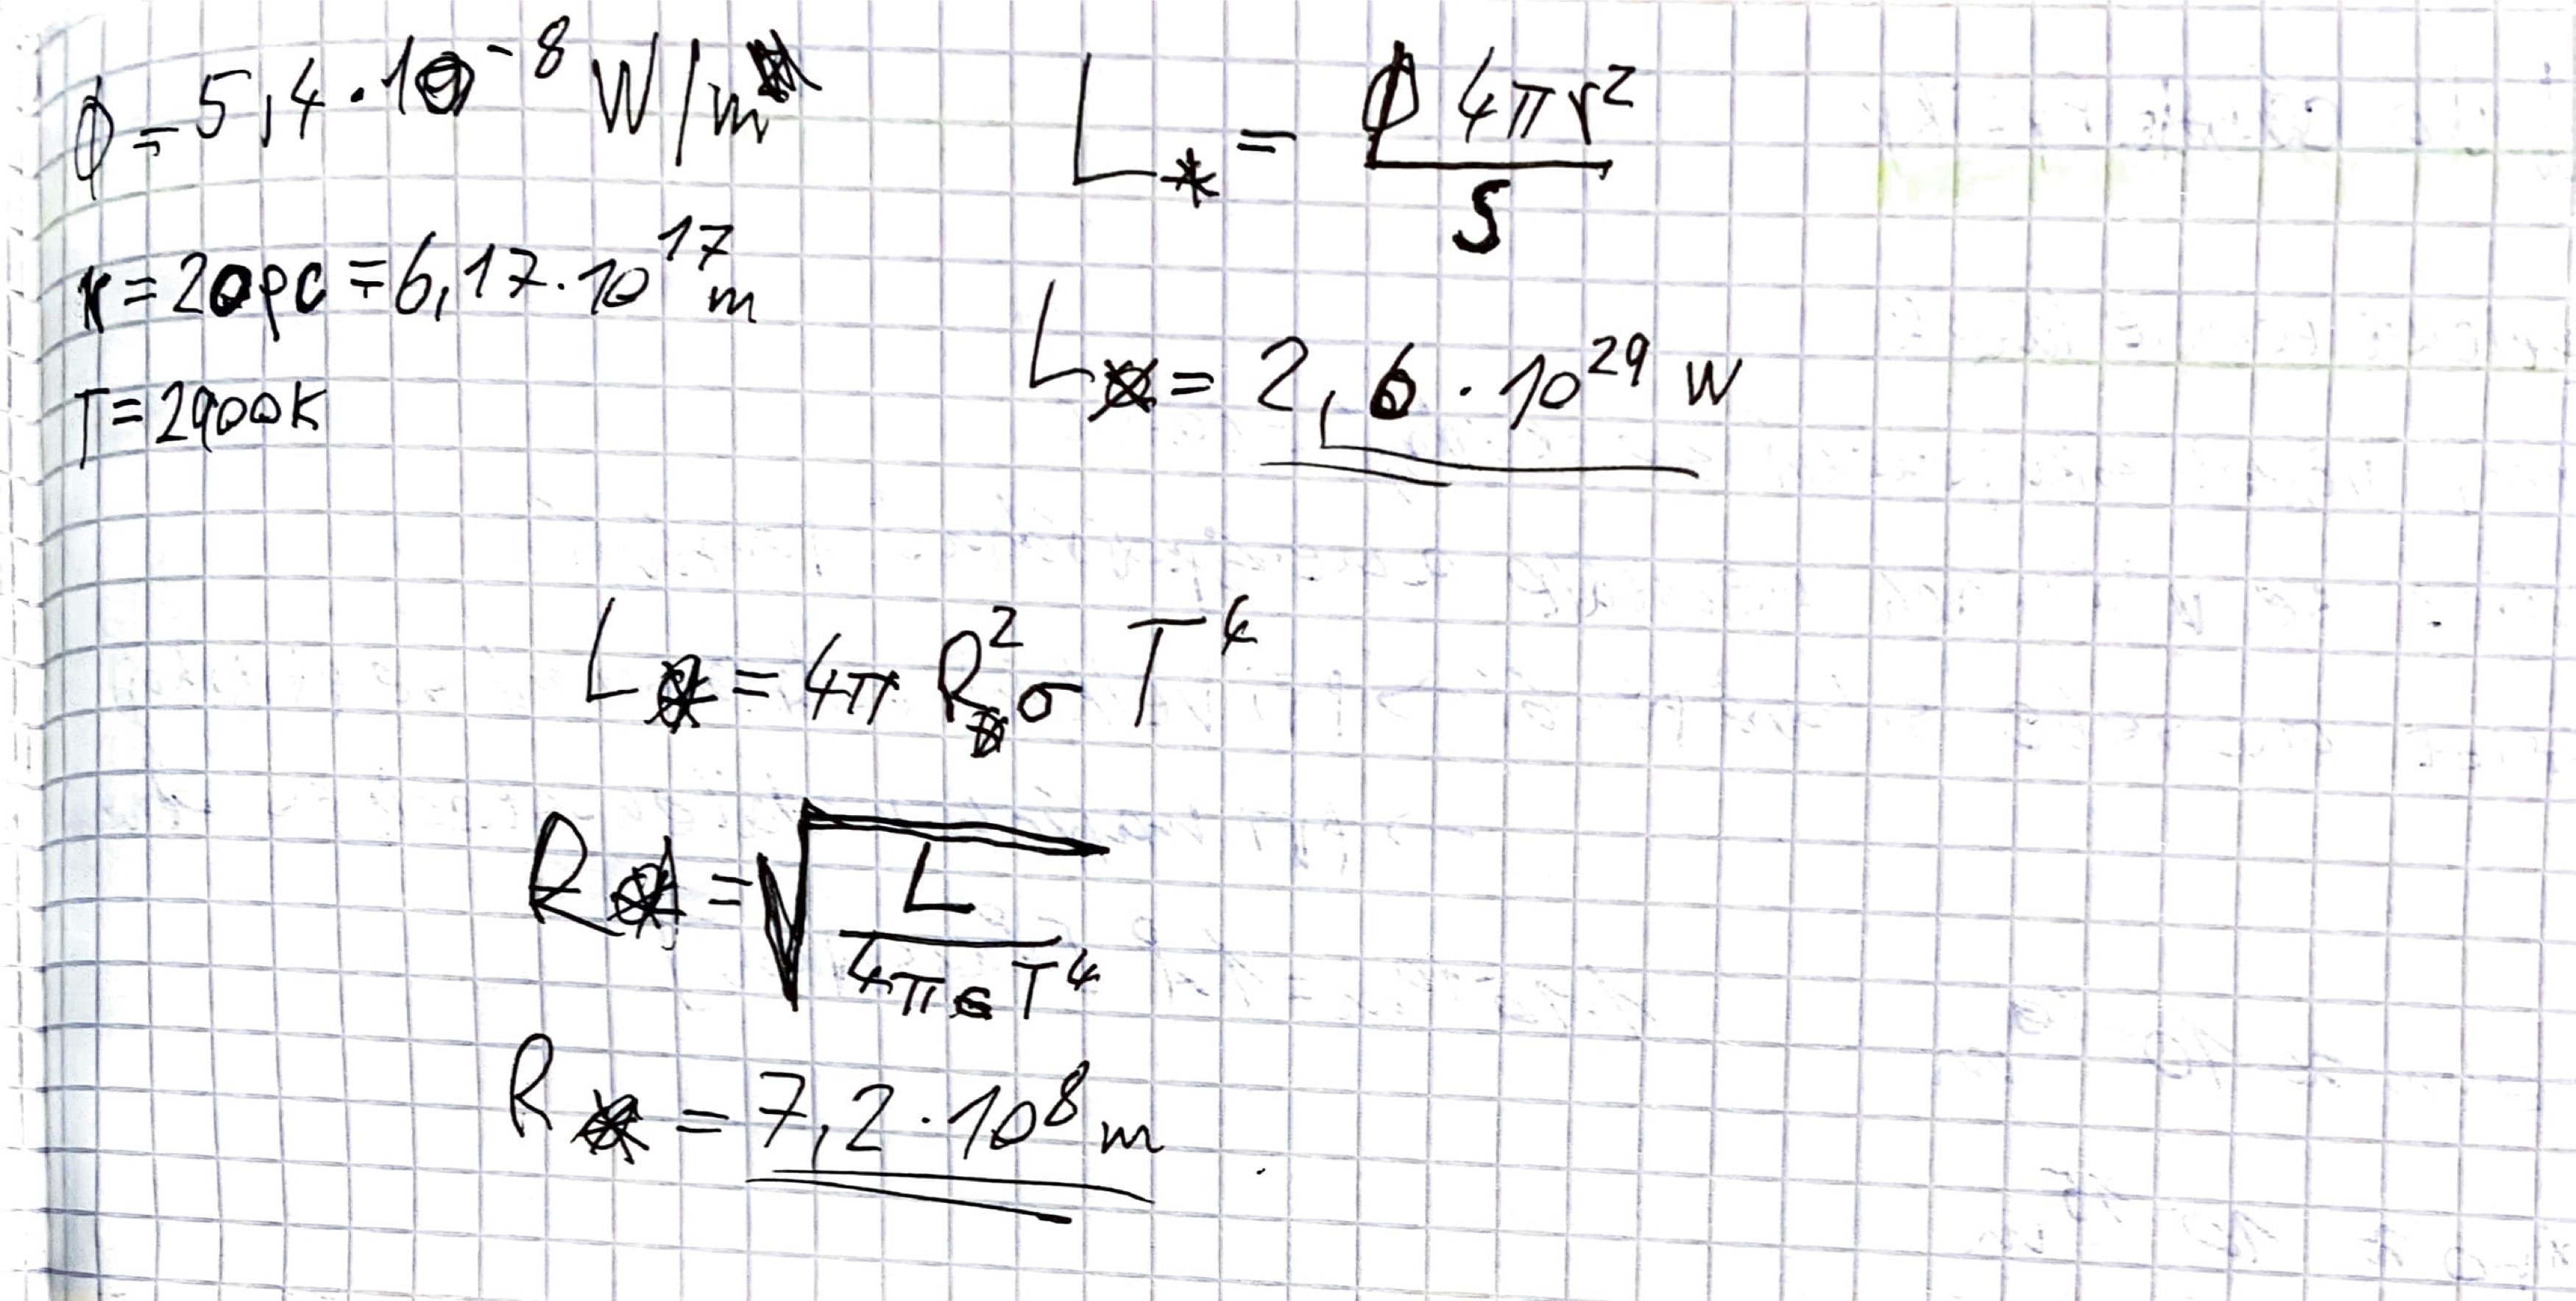 ϕ = 5,4 · 10⁻⁸ W/m
r = 20pc = 6,17 · 10¹⁷ m
T = 2900K
L* = ϕ 4πr² / S
L* = 2,6 · 10²⁹ W
L* = 4π R*² σ T⁴
R* = √(L / 4πσT⁴)
R* = 7,2 · 10⁸ m